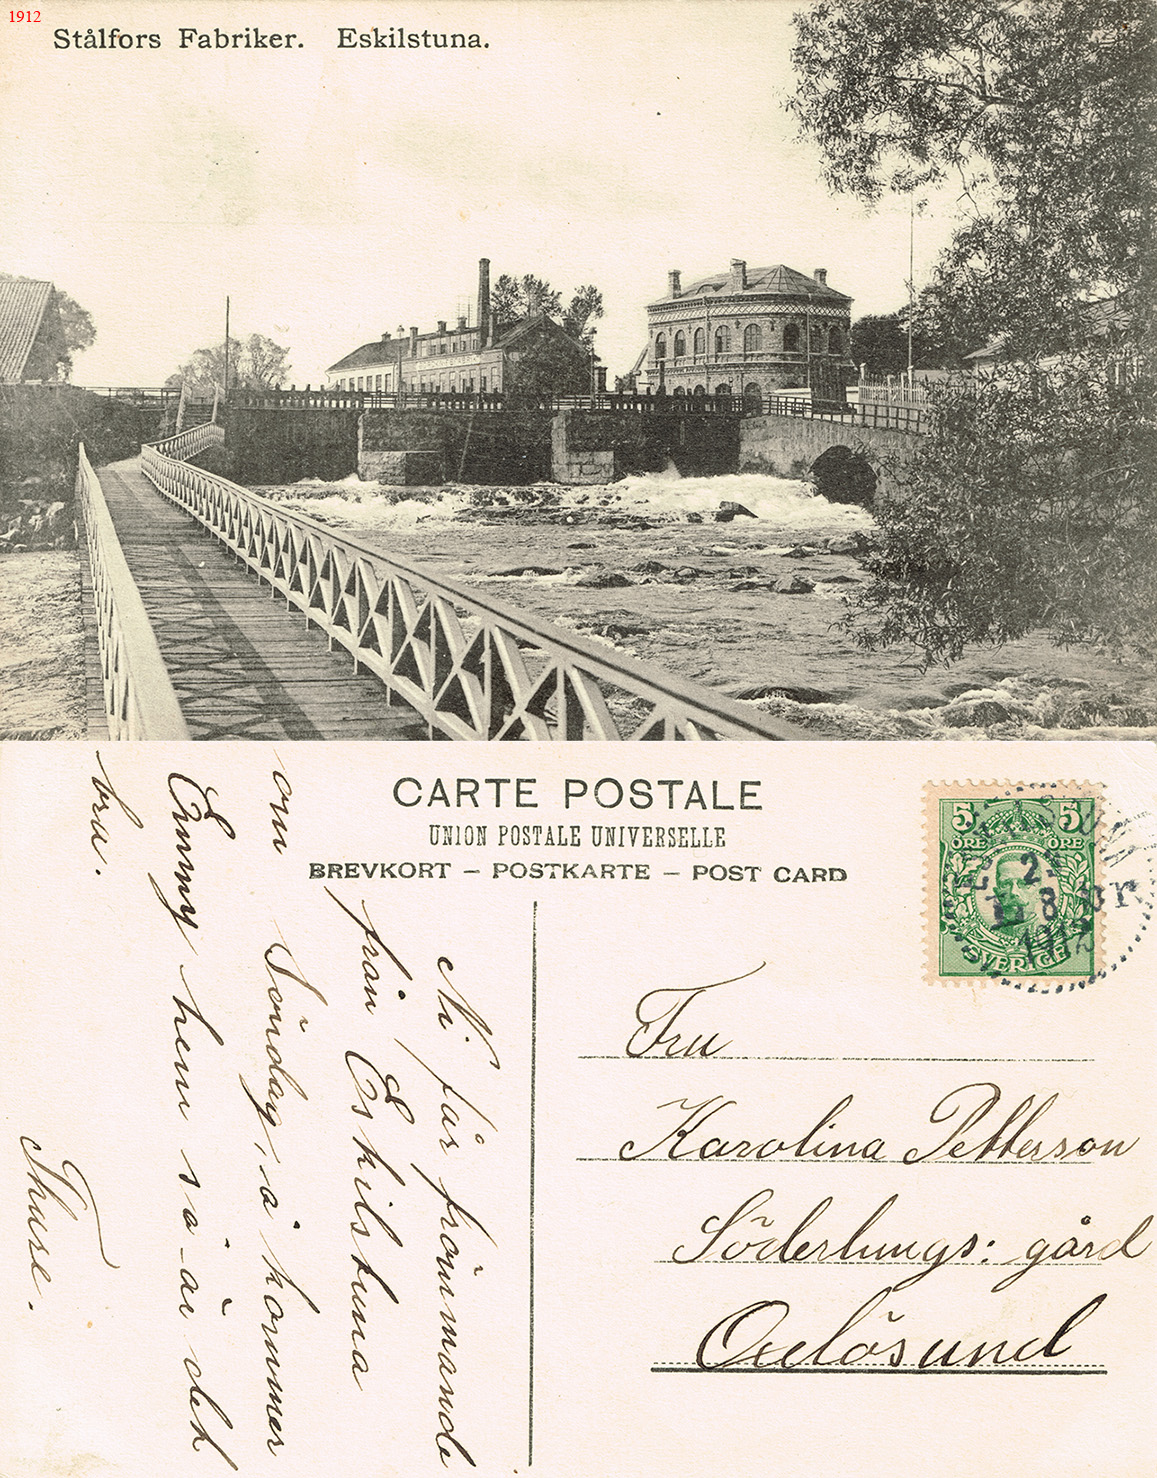 1912
Stålfors Fabriker. Eskilstuna.
CARTE POSTALE
UNION POSTALE UNIVERSELLE
BREVKORT – POSTKARTE – POST CARD
5 5
ÖRE ÖRE
SVERIGE
8
1912
Ni får främmande
från Eskilstuna
om Söndag, å kommer
Emmy hem så är det
bra.
Thure.
Fru
Karolina Petterson
Söderlungs: gård
Oxelösund